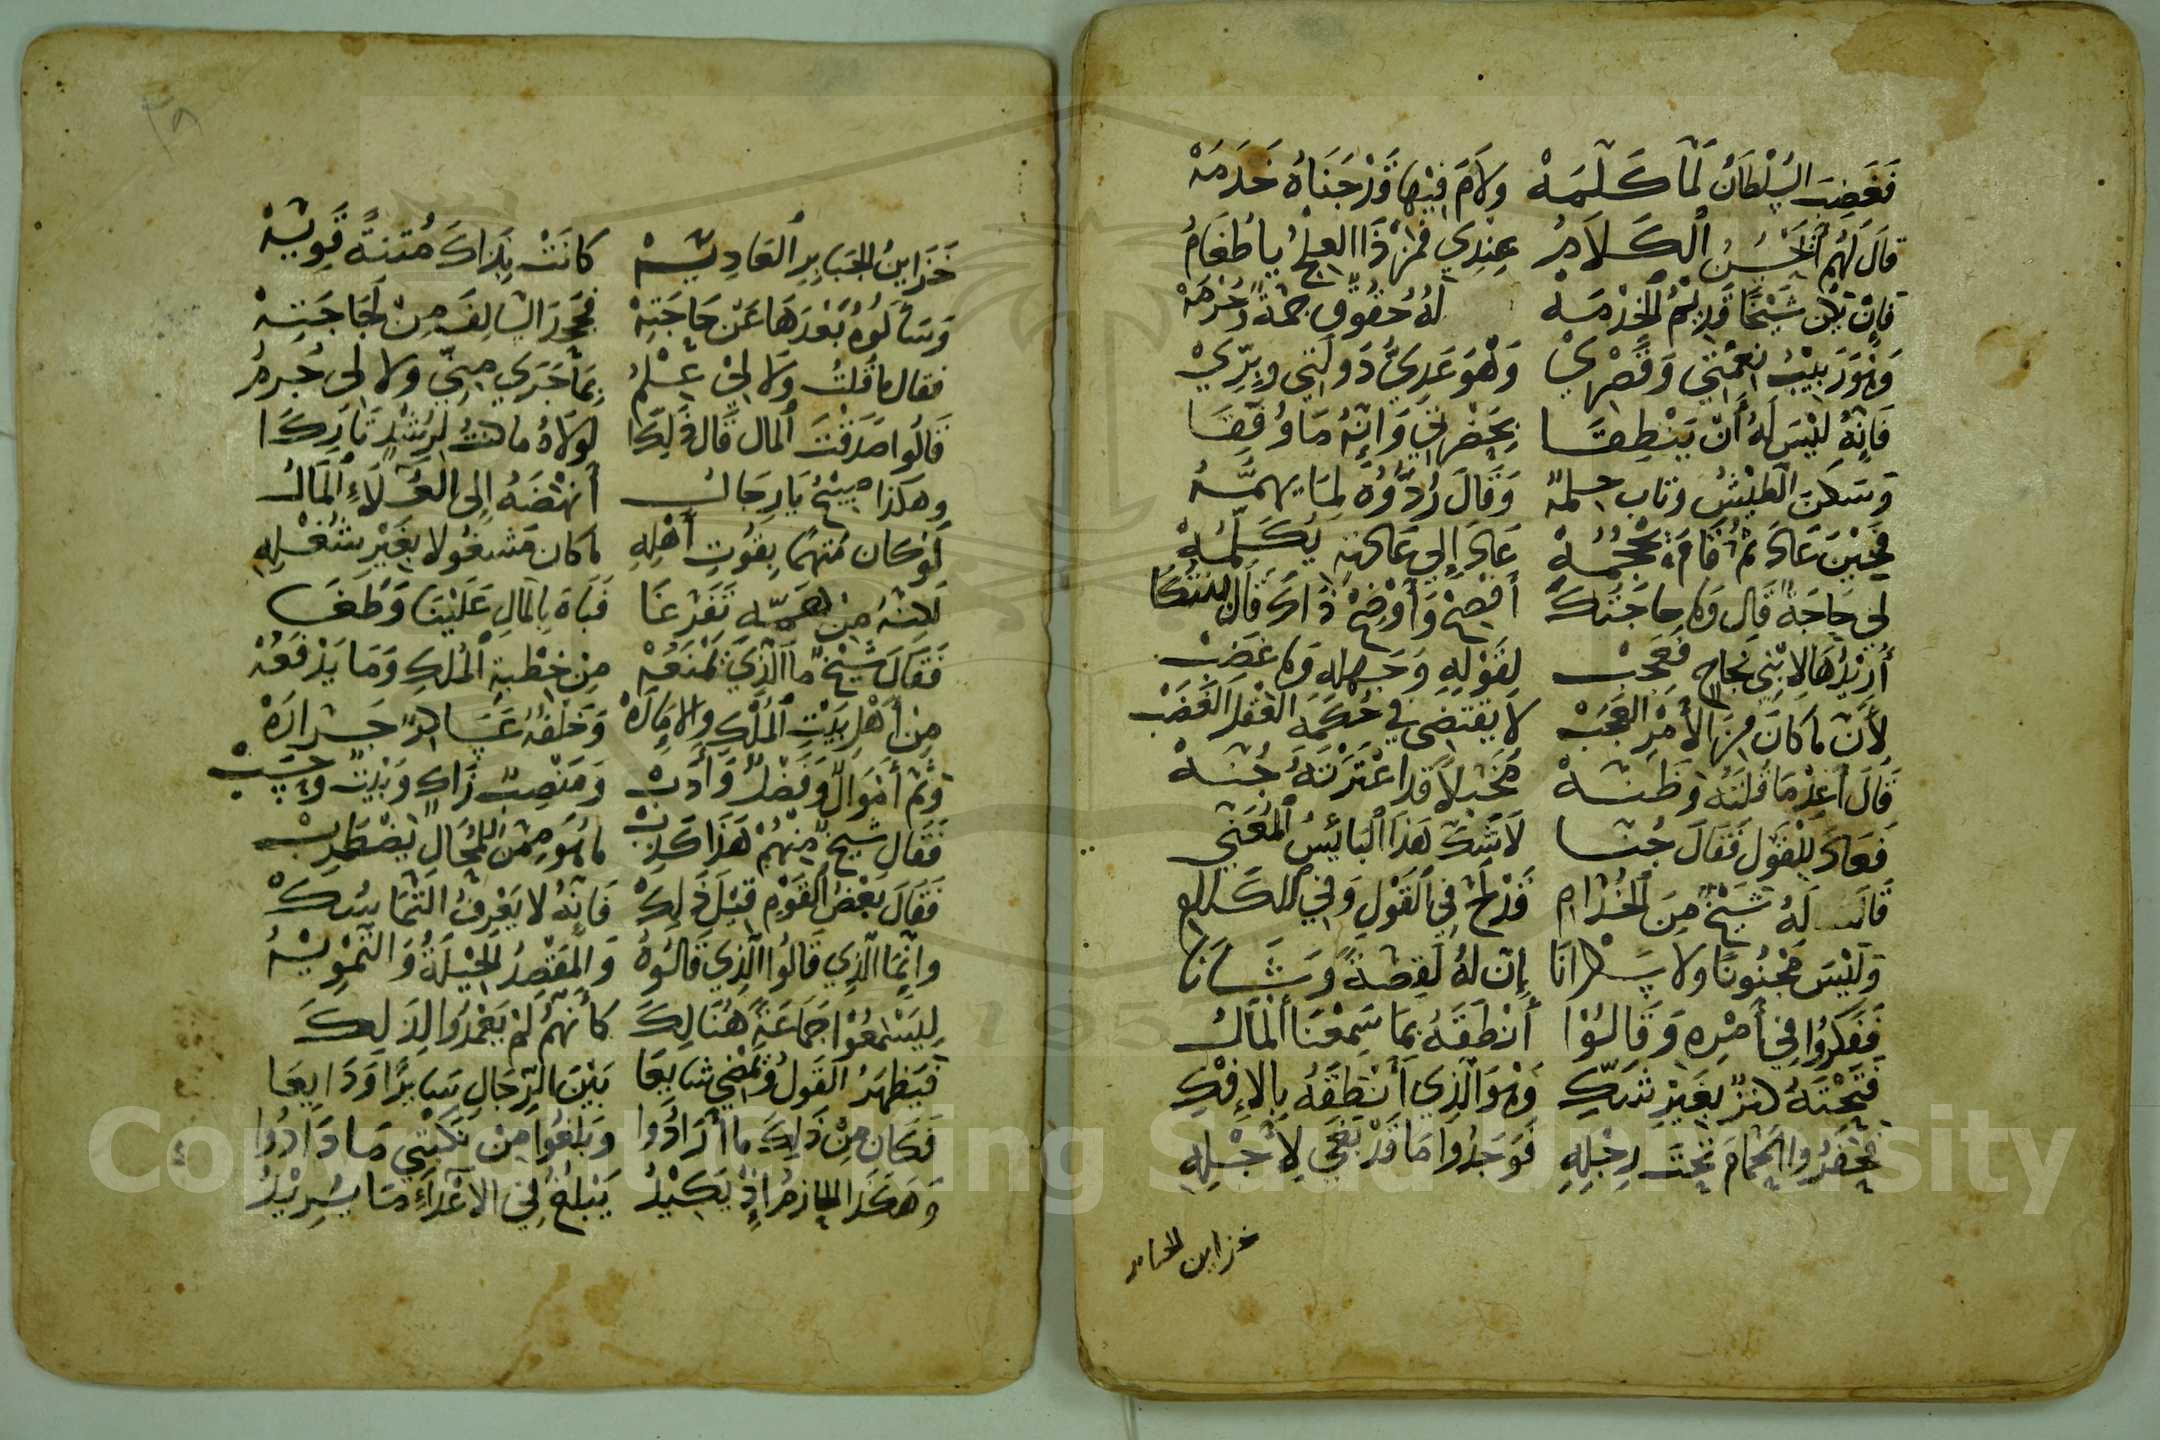 فَغَضِبَ السُّلْطَانُ لَمَّا كَلَّمَهْ وَلَامَ فِيهَا قَدْ جَنَاهُ خَدَمَهْ
قَالَ لَهُمْ الْكَلَامُ عِنْدِي فَمَنْ ذَا العِلْجُ يا طَغَامُ
فَإِنْ يَكُنْ شَيْخًا قَدِيْمُ الْخِدْمَهْ لَهُ حُقُوقٌ جَمَّةٌ وَحُرْمَهْ
وَهْوَ رَبِيْبُ نِعْمَتِي وَقَصْرِيْ وَهْوَ غَذِيُّ دَوْلَتِي وَبِرِّيْ
فَإِنَّهُ لَيْسَ لَهُ أَنْ يَنْطِقَا بِحَضْرَتِي وَإِنَّهُ مَا وُفِّقَا
وَسَكَنَ الطَّيْشُ وثاب حلمهُ وَقَالَ رُدُّوْهُ لِمَا يهمُّهُ
فَحِيْنَ عَادَ ثُمَّ قَامَ عَادَ إِلَى عَادَتِهِ يُكَلِّمُهْ
لِي حَاجَةٌ قَالَ وَمَا حاجَتُكَا أَفْصِحْ وَأَوْضِحْ ذَاكَ قَالَ بِنْتُكَا
أُرِيْدُهَا لِابْنِي نَجَاحٍ فَعَجِبْ لِقَوْلِهِ وَجَهْلِهِ وَمَا غَضِبْ
لِأَنَّ مَا كَانَ مِنَ الأَمْرِ العَجَبْ لا يقتضي في حُكْمِهِ العَقْلُ الغَضَبْ
قَالَ أَعِدْ مَا قُلْتَهُ وَظَنَّهْ مُخَبَّلًا قَدِ اعْتَرَتْهُ جُنَّهْ
فَعَادَ لِلْقَوْلِ فَقَالَ جُنَّا لَا شَكَّ هَذَا البَائِسُ المُعَنَّى
قَالَ لَهُ شَيْخٌ مِنَ الخُدَّامِ قَدْ لَجَّ فِي القَوْلِ وَفِي الكَلَامِ
وَلَيْسَ مَجْنُونًا ولا سَكْرَانَا إِنَّ لَهُ لَقِصَّةً وَشَانَا
فَفَكَرُوا فِي أَمْرِهِ وَقَالُوْا أَنْطَقَهُ بِمَا سَمِعْنَا المَالُ
فَتَحْتَهُ كَنْزٌ بِغَيْرِ شَكِّ وَهْوَ الَّذِي أَنْطَقَهُ بِالإِفْكِ
فَحَفَرُوا الحَمَّامَ تَحْتَ رِجْلِهِ فَوَجَدُوا مَا قَدْ بَغَى لِأَجْلِهِ
خزاين الجبابر
خَزَايِنُ الجَبَابِرِ العَادِيَّهْ كَانَتْ بِذَاكَ مُتْنَةً قَوِيَّهْ
وَسَأَلُوْهُ بَعْدَهَا عَنْ حَاجَتِهْ فَجَحَدَ السَّالِفَ مِنْ لَجَاجَتِهْ
فقال ما قُلْتُ وَلَا لِيْ عِلْمُ بِمَا جَرَى مِنِّي ولا لِي جُرْمُ
قَالُوا صَدَقْتَ المَال قَالَ ذَلِكَا لَوْلَاهُ ما كُنْتُ لِرُشْدٍ تَارِكَا
وهكذا مِيْنُحُ يَا رِجَالُ أَنْهَضَهُ إِلَى العُلَاءِ المَالُ
لَوْ كَان مُتَّهَمًا بِقُوتِ أَهْلِهِ مَا كان مَشْغُولا بِغَيْرِ شُغْلِهِ
لَكِنَّهُ مِنْ هَمِّهِ تَفَرَّغَا فَبَاءَ بِالمَالِ عَلَيْنَا وَطَغَى
فَقَالَ شَيْخٌ مَا الَّذِيْ يَمْنَعُهْ مِنْ خِطْبَةِ المُلْكِ وَمَا يَدْفَعُهْ
مِنْ أَهْلِ بَيْتِ المُلْكِ وَالإِمَارَهْ وَخَلْفُهُ عَسَاكِرٌ جَرَّارَهْ
وَثَمَّ أَمْوَالٌ وَفَضْلٌ وَأَدَبْ وَمَنْصِبٌ زَاكٍ وَبَيْتٌ وَحَسَبْ
فَقَالَ شَيْخٌ مِنْهُمْ هَذَا كَذِبْ مَا هُوَ مِمَّنْ لِلْمُحَالِ يَضْطَرِبْ
فَقَالَ بَعْضُ القَوْمِ قَبْلَ ذَلِكْ فَإِنَّهُ لا يَعْرِفُ التَّمَاسُكْ
وَإِنَّمَا الَّذِي قَالُوا الَّذِي قَالُوْهُ وَالمَقْصِدُ الحِيْلَةُ وَالتَّمْوِيْهُ
لِيَسْمَعُوْا جَمَاعَةً هُنَالِكَ كَأَنَّهُمْ لَمْ يَعْمَدُوا لِذَلِكَ
فَيَظْهَرُ القَوْلُ وَيَمْضِي شَايِعَا بَيْنَ الرِّجَالِ سَايِرًا وَذَايِعَا
فَكَانَ مِنْ ذَلِكَ مَا أَرَادُوا وَبَلَغُوا مِنْ نَكْبَتِي مَا ذَادُوا
وَهَكَذَا الحَازِمُ إِذْ يَكِيْدُ يَبْلُغُ فِي الأَعْدَاءِ مَا يُرِيْدُ